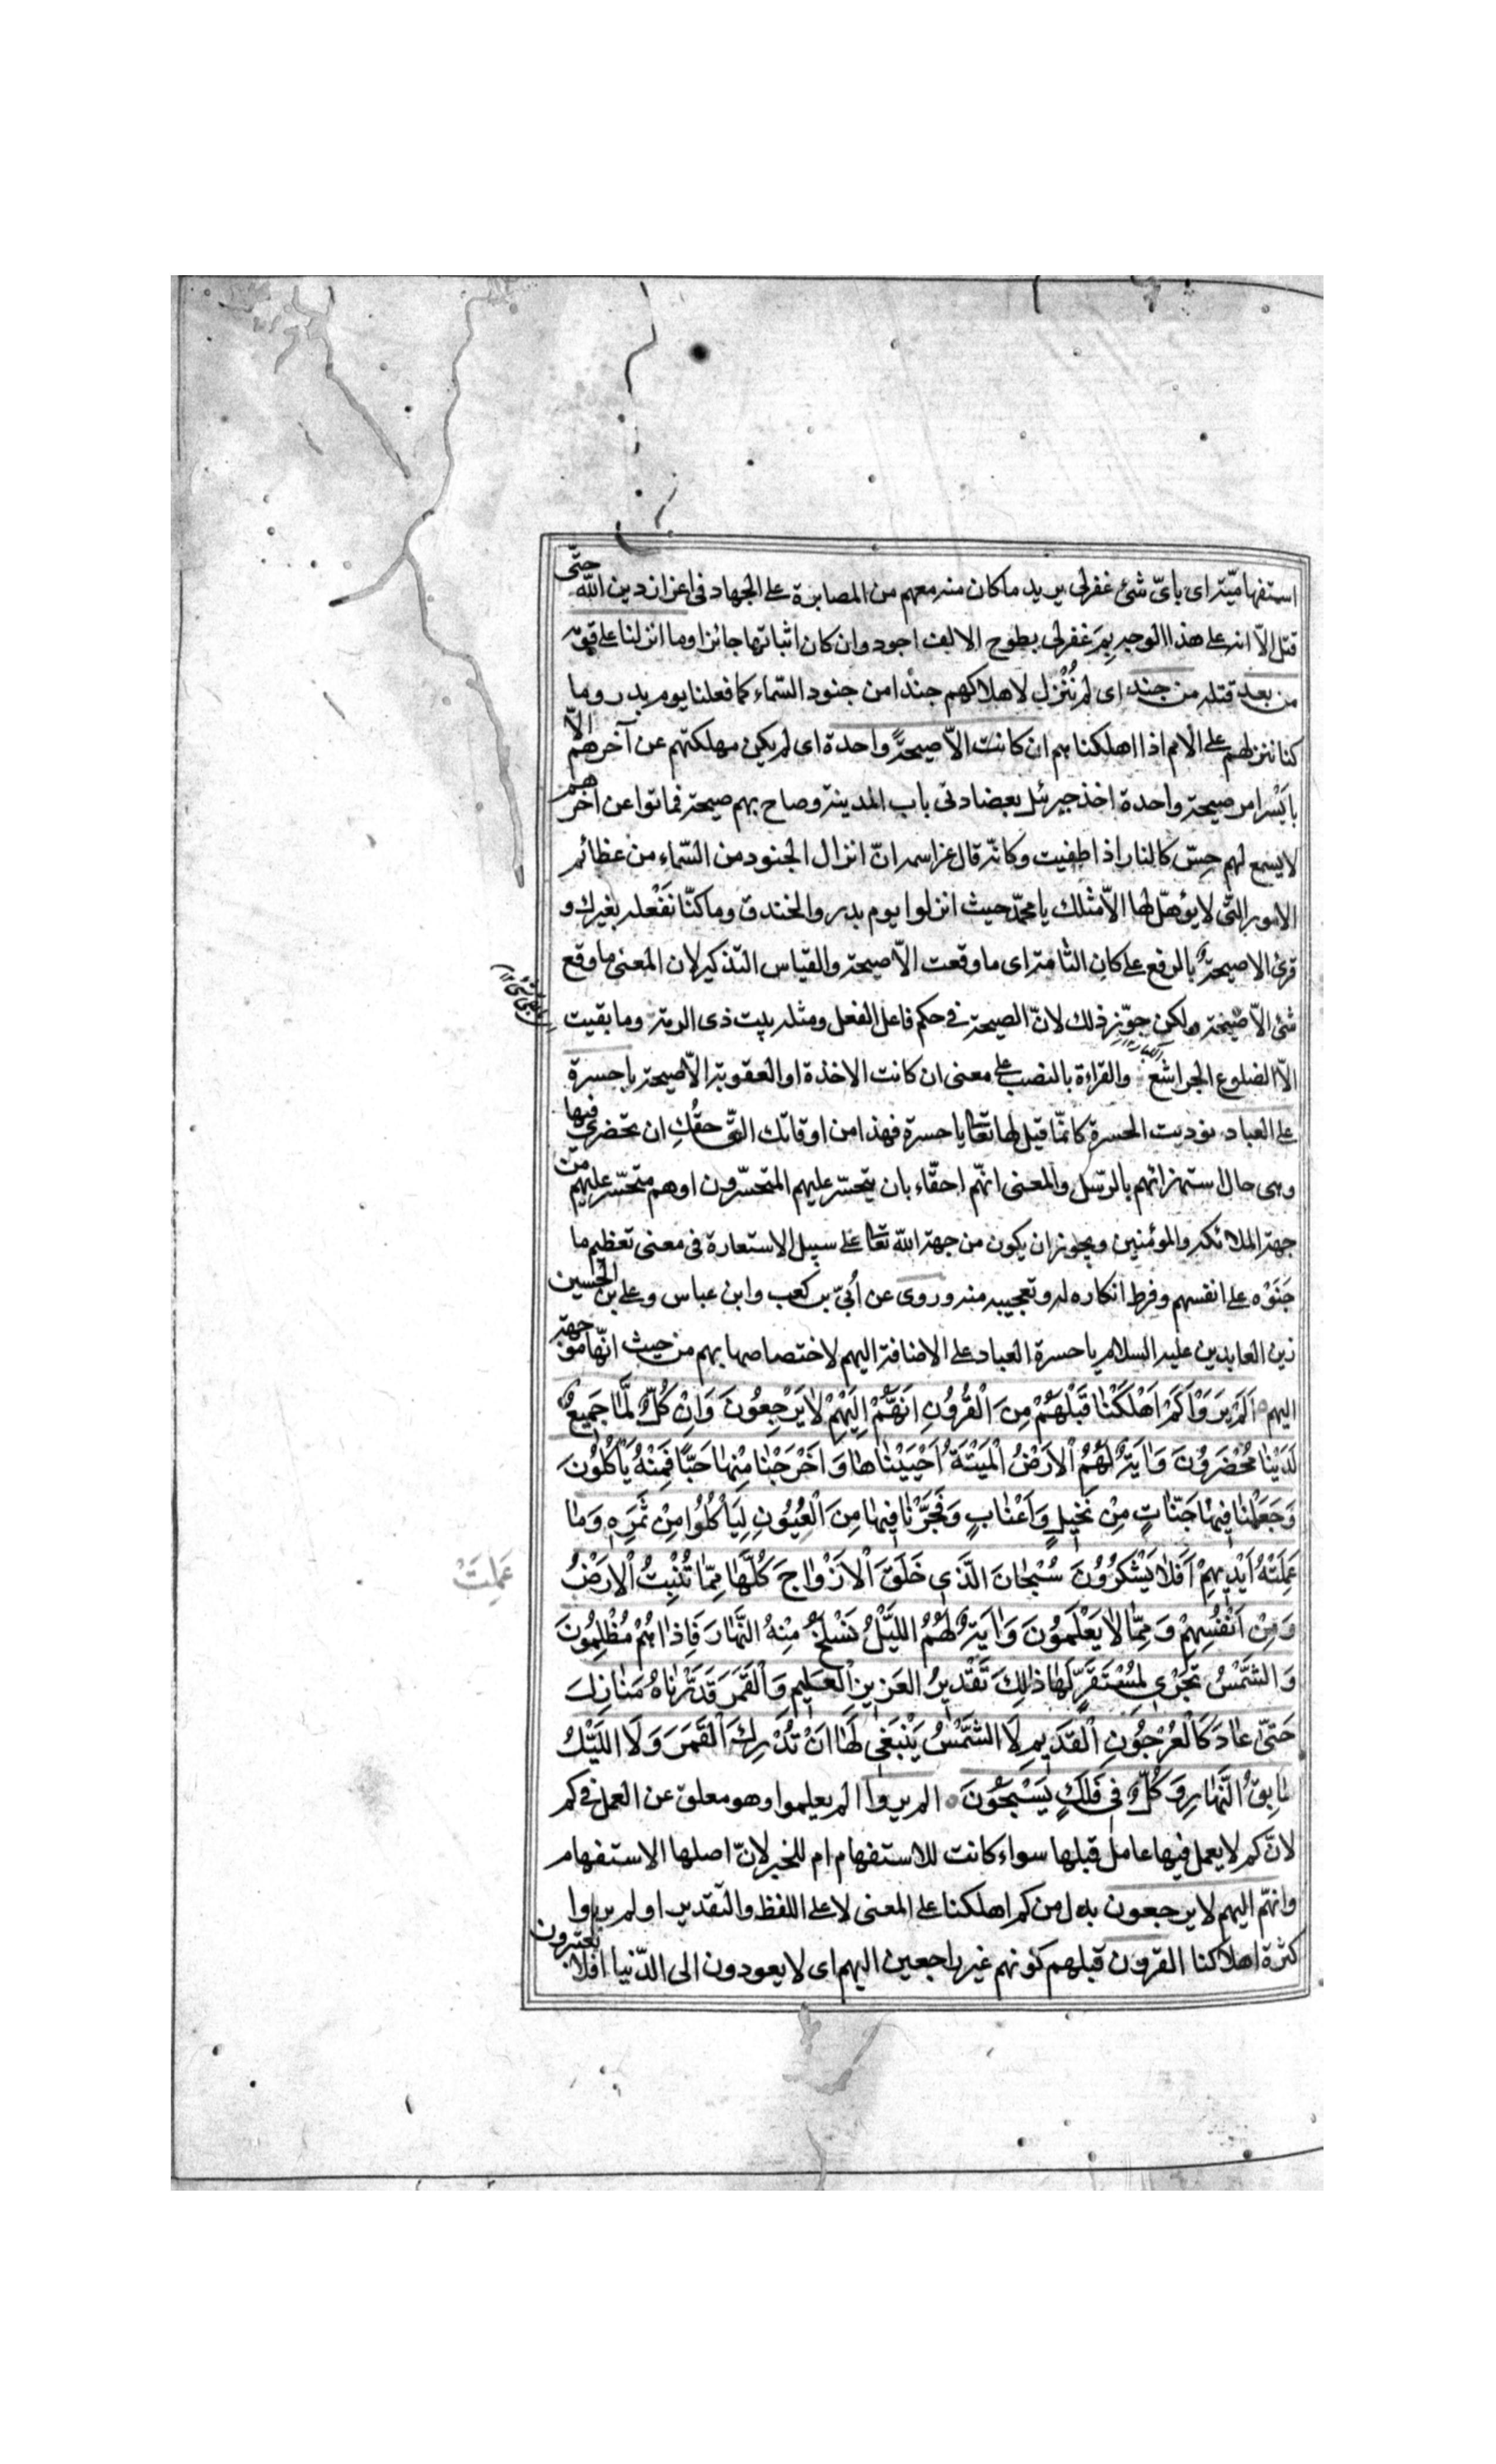 استفهاميّة اى باىّ شئ غفر لى يريد ما كان منه معهم من المصابرة على الجهاد فى اعزاز دين الله حتّى
قتل الّا انه على هذا الوجه بِمَ غفر لى بطرح الالف اجود وان كان اثباتها جائزا وما انزلنا على قومه
من بعد قتله من جند اى لم نُنْزِل لاهلاكهم جندا من جنود السّماء كما فعلنا يوم بدر وما
كنا ننزلهم على الامم اذا اهلكناهم ان كانت الّا صيحةً واحدة اى لم يكن مهلكتهم عن آخرهم الّا
بايْسر امر صيحة واحدة اخذ جبرئل بعضادتى باب المدينة وصاح بهم صيحة فماتوا عن آخرهم
لا يسمع لهم حِسّ كالنار اذا اطفيت وكانّه قال عز اسمه انّ انزال الجنود من السّماء من عظائم
الامور التّى لا يؤهّل لها الّا مثلك يا محمّد حيث انزلوا يوم بدر والخندق وما كنّا نَفْعله بغيرك و
قرئ الا صيحةٌ بالرفع على كان التامة اى ما وقعت الّا صيحة والقياس التذكير لان المعنى ما وقع
شئ الّا صيحة ولكن جوّز ذلك لانّ الصيحة فى حكم فاعل الفعل ومثله بيت ذى الرمة وما بقيت
الّا الضلوع الجراشع والقراءة بالنصب على معنى ان كانت الاخذة او العقوبة الّا صيحة يا حسرة
على العباد نوديت الحسرة كانّما قيل لها تعالى يا حسرة فهذا من اوقاتك التّى حقُكِ ان تحضرى فيها
وهى حال استهزائهم بالرّسل والمعنى انهّم احقّاء بان يتحسّر عليهم المتحسّرون او هم متحسّر عليهم من
جهة الملائكة والمؤمنين ويجوز ان يكون من جهة الله تعا على سبيل الاستعارة فى معنى تعظيم ما
جَنَوْه على انفسهم وفرط انكاره له وتعجيبه منه وروى عن اُبىّ بن كعب وابن عباس وعلى بن الحسين
زين العابدين عليه السلام يا حسرة العباد على الاضافة اليهم لاختصاصها بهم من حيث انّها موجهّة
اليهم اَلَمْ يَرَوْا كَمْ اَهْلَكْنٰا قَبْلَهُمْ مِنَ الْقُرُونِ اَنَّهُمْ اِلَيْهِمْ لاٰ يَرْجِعُونَ وَاِنْ كُلٌّ لَمّٰا جَمِيعٌ
لَدَيْنٰا مُحْضَرُونَ وَاٰيَةٌ لَهُمُ الْاَرْضُ الْمَيْتَةُ اَحْيَيْنٰاهٰا وَاَخْرَجْنٰا مِنْهٰا حَبًّا فَمِنْهُ يَأْكُلُونَ
وَجَعَلْنٰا فِيهٰا جَنّٰاتٍ مِنْ نَخِيلٍ وَاَعْنٰابٍ وَفَجَّرْنٰا فِيهٰا مِنَ الْعُيُونِ لِيَأْكُلُوا مِنْ ثَمَرِهِ وَمٰا
عَمِلَتْهُ اَيْدِيهِمْ اَفَلاٰ يَشْكُرُونَ سُبْحٰانَ الَّذِى خَلَقَ الْاَزْوٰاجَ كُلَّهٰا مِمّٰا تُنْبِتُ الْاَرْضُ
عَمِلَتْ
وَمِنْ اَنْفُسِهِمْ وَمِمّٰا لاٰ يَعْلَمُونَ وَاٰيَةٌ لَهُمُ اللَّيْلُ نَسْلَخُ مِنْهُ النَّهٰارَ فَاِذٰا هُمْ مُظْلِمُونَ
وَالشَّمْسُ تَجْرِى لِمُسْتَقَرٍّ لَهٰا ذٰلِكَ تَقْدِيرُ الْعَزِيزِ الْعَلِيمِ وَالْقَمَرَ قَدَّرْنٰاهُ مَنٰازِلَ
حَتّىٰ عٰادَ كَالْعُرْجُونِ الْقَدِيمِ لَا الشَّمْسُ يَنْبَغِى لَهٰا اَنْ تُدْرِكَ الْقَمَرَ وَلَا اللَّيْلُ
سٰابِقُ النَّهٰارِ وَكُلٌّ فِى فَلَكٍ يَسْبَحُونَ الم يروا الم يعلموا وهو معلق عن العمل فى كم
لانّ كم لا يعمل فيها عامل قبلها سواء كانت للاستفهام ام للخبر لانّ اصلها الاستفهام
وانهّم اليهم لا يرجعون بدل من كم اهلكنا على المعنى لا على اللفظ والتقدير او لم يروا
كثرة اهلاكنا القرون قبلهم كونهم غير راجعين اليهم اى لا يعودون الى الدّنيا افلا يعتبرون